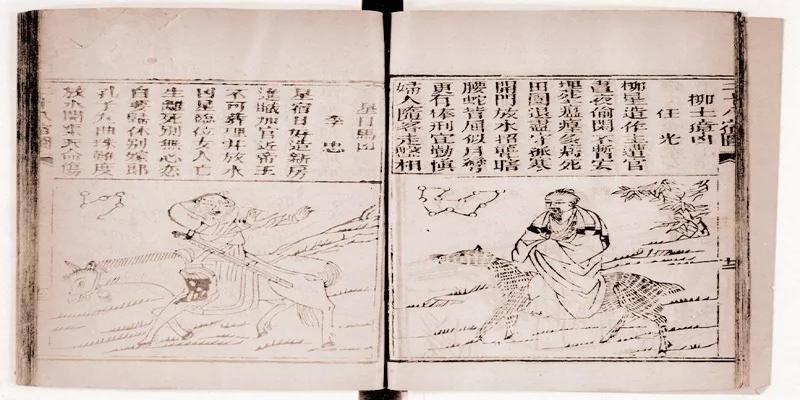 二十八宿圖
柳土獐凶
任光
柳星造作主遭官
晝夜偷閑不暫安
埋葬瘟多病死
田園退盡守孤寒
開門放水招聾瞎
腰蛇背屈似月彎
更有体刑宜謹慎
婦人隨客走盤桓
星日馬凶
李忠
星宿日好造新房
進職加官近帝王
不可葬埋并放水
凶星臨位女人亡
生離死別無心戀
自要歸休別嫁郎
孔子九曲珠難度
放水開天命傷